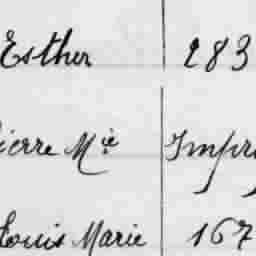 Esther 283
ierre Mie Impr
Louis Marie 167